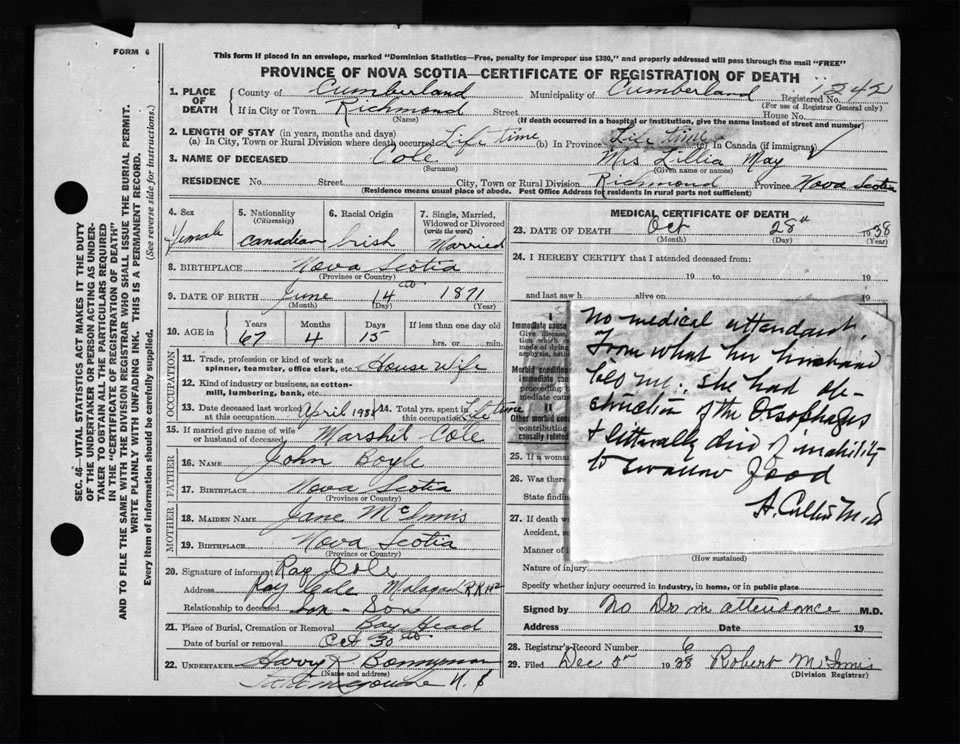 FORM 6
This form if placed in an envelope, marked "Dominion Statistics—Free, penalty for improper use $300," and properly addressed will pass through the mail "FREE"
PROVINCE OF NOVA SCOTIA—CERTIFICATE OF REGISTRATION OF DEATH
1. PLACE OF DEATH County of Cumberland Municipality of Cumberland Registered No. 1242
(For use of Registrar General only)
If in City or Town Richmond Street House No.
(Name) (If death occurred in a hospital or institution, give the name instead of street and number)
2. LENGTH OF STAY (in years, months and days)
(a) In City, Town or Rural Division where death occurred Life time (b) In Province Life time (c) In Canada (if immigrant)
3. NAME OF DECEASED Cole Mrs Lillia May
(Surname) (Given name or names)
RESIDENCE No. Street City, Town or Rural Division Richmond Province Nova Scotia
(Residence means usual place of abode. Post Office Address for residents in rural parts not sufficient)
4. Sex female
5. Nationality (Citizenship) Canadian
6. Racial Origin Irish
7. Single, Married, Widowed or Divorced (write the word) Married
8. BIRTHPLACE Nova Scotia
(Province or Country)
9. DATE OF BIRTH June 14th 1871
(Month) (Day) (Year)
10. AGE in Years 67 Months 4 Days 15 If less than one day old hrs. or min.
OCCUPATION
11. Trade, profession or kind of work as spinner, teamster, office clerk, etc. House Wife
12. Kind of industry or business, as cotton-mill, lumbering, bank, etc.
13. Date deceased last worked at this occupation April 1938 14. Total yrs. spent in this occupation Life time
15. If married give name of wife or husband of deceased Marshil Cole
FATHER
16. NAME John Boyle
17. BIRTHPLACE Nova Scotia
(Province or Country)
MOTHER
18. MAIDEN NAME Jane McInnis
19. BIRTHPLACE Nova Scotia
(Province or Country)
20. Signature of informant Ray Cole
Address Ray Cole RR #2
Relationship to deceased Son - Son
21. Place of Burial, Cremation or Removal Bay Head
Date of burial or removal Oct 30th
22. UNDERTAKER Harry K Bonnyman
(Name and address)
Tatamagouche N.S
MEDICAL CERTIFICATE OF DEATH
23. DATE OF DEATH Oct 28th 1938
(Month) (Day) (Year)
24. I HEREBY CERTIFY that I attended deceased from:
19 to 19
and last saw h alive on 19
I
Immediate cause
Give disease,
mode of dying
asphyxia, asth
Morbid conditions
immediate cause
proceeding
mediate cause
II
Other morbid
contributing
causally related
No medical attendant,
From what her husband
told me. she had ob-
struction of the Oesophagus
& litterally died of inability
to swallow food
25. If a woman
26. Was there
State findin
27. If death wa
Accident, su
Manner of i
(How sustained)
Nature of injury
Specify whether injury occurred in industry, in home, or in public place
Signed by No Dr in attendance M.D.
Address Date 19
28. Registrar's Record Number 6
29. Filed Dec 5th 1938 Robert McInnis
(Division Registrar)
SEC. 46—VITAL STATISTICS ACT MAKES IT THE DUTY
OF THE UNDERTAKER OR PERSON ACTING AS UNDER-
TAKER TO OBTAIN ALL THE PARTICULARS REQUIRED
IN THE "CERTIFICATE OF REGISTRATION OF DEATH"
AND TO FILE THE SAME WITH THE DIVISION REGISTRAR WHO SHALL ISSUE THE BURIAL PERMIT.
WRITE PLAINLY WITH UNFADING INK. THIS IS A PERMANENT RECORD.
Every item of information should be carefully supplied. (See reverse side for instructions.)